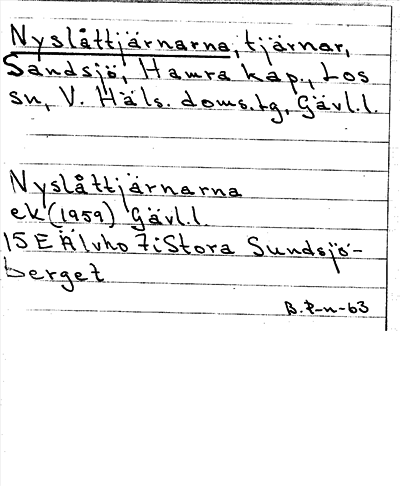 Nyslåttjärnarna, tjärnar,
Sandsjö, Hamra kap., Los
sn, V. Häls. doms.tg, Gävl.l.
Nyslåttjärnarna
ek (1959) Gävl.l.
15E Älvho 7i Stora Sundsjö-
berget
B. P-n-63